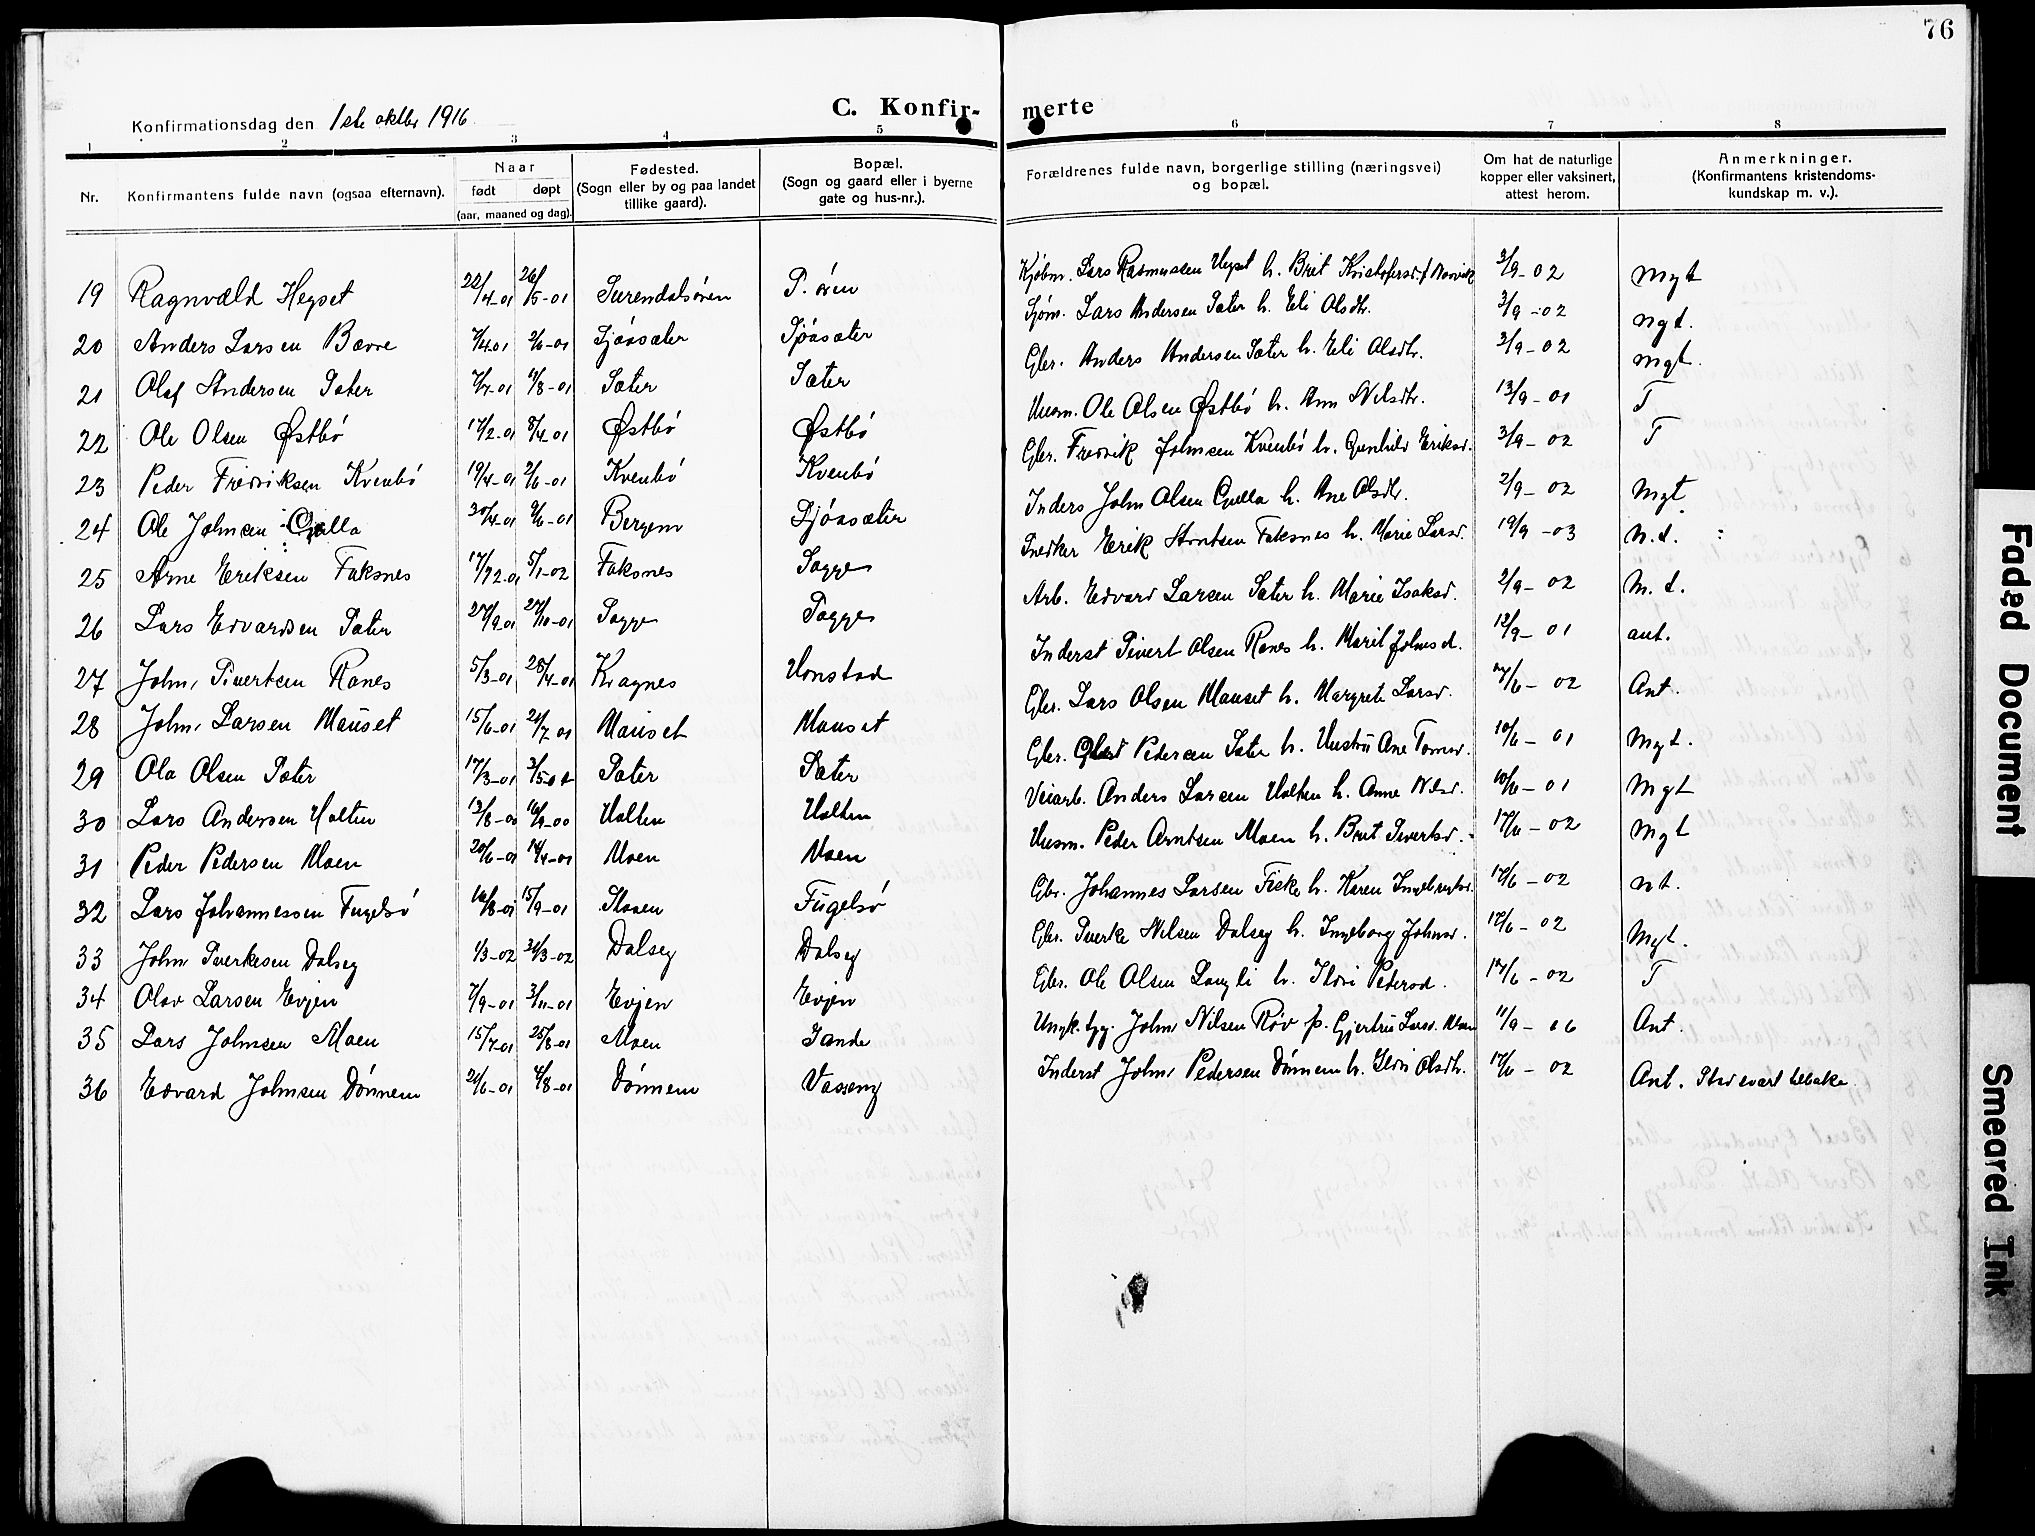 76
Konfirmationsdag den 1ste oktbr 1916
C. Konfir- merte
1 2 3 4 5 6 7 8
Nr.
Konfirmantens fulde navn (ogsaa efternavn).
Naar
født døpt
(aar, maaned og dag).
Fødested.
(Sogn eller by og paa landet
tillike gaard).
Bopæl.
(Sogn og gaard eller i byerne
gate og hus-nr.).
Forældrenes fulde navn, borgerlige stilling (næringsvei)
og bopæl.
Om hat de naturlige
kopper eller vaksinert,
attest herom.
Anmerkninger.
(Konfirmantens kristendoms-
kundskap m. v.).
19 Ragnvald Heyset 22/4-01 26/5-01 Surendalsøren S. øren Kjøbm. Lars Rasmussen Heyset h. Brit Kristofersd. 3/9-02 Mgt
20 Anders Larsen Bævre 7/4-01 2/6-01 Sjøasæter Sjøasæter Sjøm. Lars Andersen Sæter h. Eli Olsdtr. 3/9-02 Mgt.
21 Olaf Andersen Sæter 7/7-01 4/8-01 Sæter Sæter Gbr. Anders Andersen Sæter h. Eli Olsdtr. 3/9-02 Mgt.
22 Ole Olsen Østbø 17/2-01 8/4-01 Østbø Østbø Husm. Ole Olsen Østbø h. Ann Nilsdtr. 13/9-01 T
23 Peder Fredriksen Kvenbø 19/4-01 2/6-01 Kvenbø Kvenbø Gbr. Fredrik Johnsen Kvenbø h. Gunhild Eriksd. 3/9-02 T
24 Ole Johnsen Gulla 30/4-01 9/6-01 Bergem Sjøasæter Inders John Olsen Gulla h. Ane Olsdtr. 2/9-02 Mgt
25 Arne Eriksen Faksnes 17/12-01 5/1-02 Faksnes Sogge Snedker Erik Arntsen Faksnes h. Marie Larsd. 19/9-03 M.t.
26 Lars Edvardsen Sæter 27/9-01 27/10-01 Sogge Sogge Arb. Edvard Larsen Sæter h. Marie Isaksd. 2/9-02 M.t.
27 John Sivertsen Ranes 5/3-01 28/4-01 Kragnes Honstad Inderst Sivert Olsen Ranes h. Marit Johnsd. 12/9-01 ant.
28 John Larsen Mauset 15/6-01 21/7 01 Mauset Mauset Gbr. Lars Olsen Mauset h. Margrete Larsd. 17/6-02 Ant.
29 Ola Olsen Sæter 17/3-01 3/5-01 Sæter Sæter Gbr. Pedersen Sæter h. Hustru Ane Tomasd. 10/6-01 Mgt.
30 Lars Andersen Holten 13/8-00 16/9-00 Holten Holten Veiarb. Anders Larsen Holten h. Anne Nilsd. 10/6-01 Mgt
31 Peder Pedersen Moen 14/4-01 Moen Moen Husm. Peder Arntsen Moen h. Brit Sivertsd. 17/6-02 Mgt
32 Lars Johannessen Fugelsø 15/9-01 Fugelsø Gbr. Johannes Larsen Fiske h. Karen Ingebrigtsd. 17/6-02 Mt.
33 John Sverkesen Dalseg 1/3-02 31/3-02 Dalseg Dalseg Gbr. Sverke Nilsen Dalseg h. Ingeborg Johnsd. 17/6-02 Mgt.
34 Olav Larsen Evjen 7/9-01 3/11-01 Evjen Evjen Gbr. Ole Olsen Langli h. Ildri Pedersd. 17/6-02 T
35 Lars Johnsen Moen 15/7-01 25/8-01 Moen Sande Ungk. tyg. John Nilsen Røv p. Gjertru Larsd. Moen 11/9-16 Ant.
36 Edvard Johnsen Dønnem 21/6-01 4/8-01 Dønnem Vasseng Inderst John Pedersen Dønnem h. Ildri Olsdtr. 17/6-02 Ant. Staa svært tilbake
Faded Document
Smeared Ink